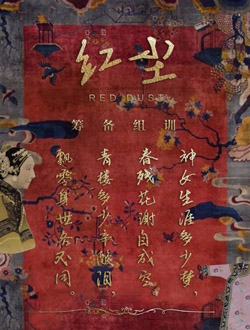 红尘
RED DUST
筹备组训
神女生涯多少梦，
春残花谢自成空。
青楼多少辛酸泪，
飘零身世各不同。